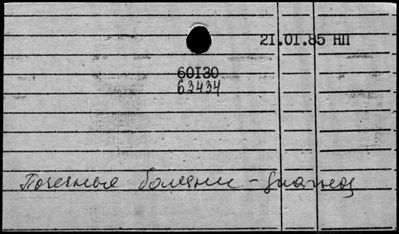 21.01.85 НП
60130
63434
Почечные болезни - диагноз